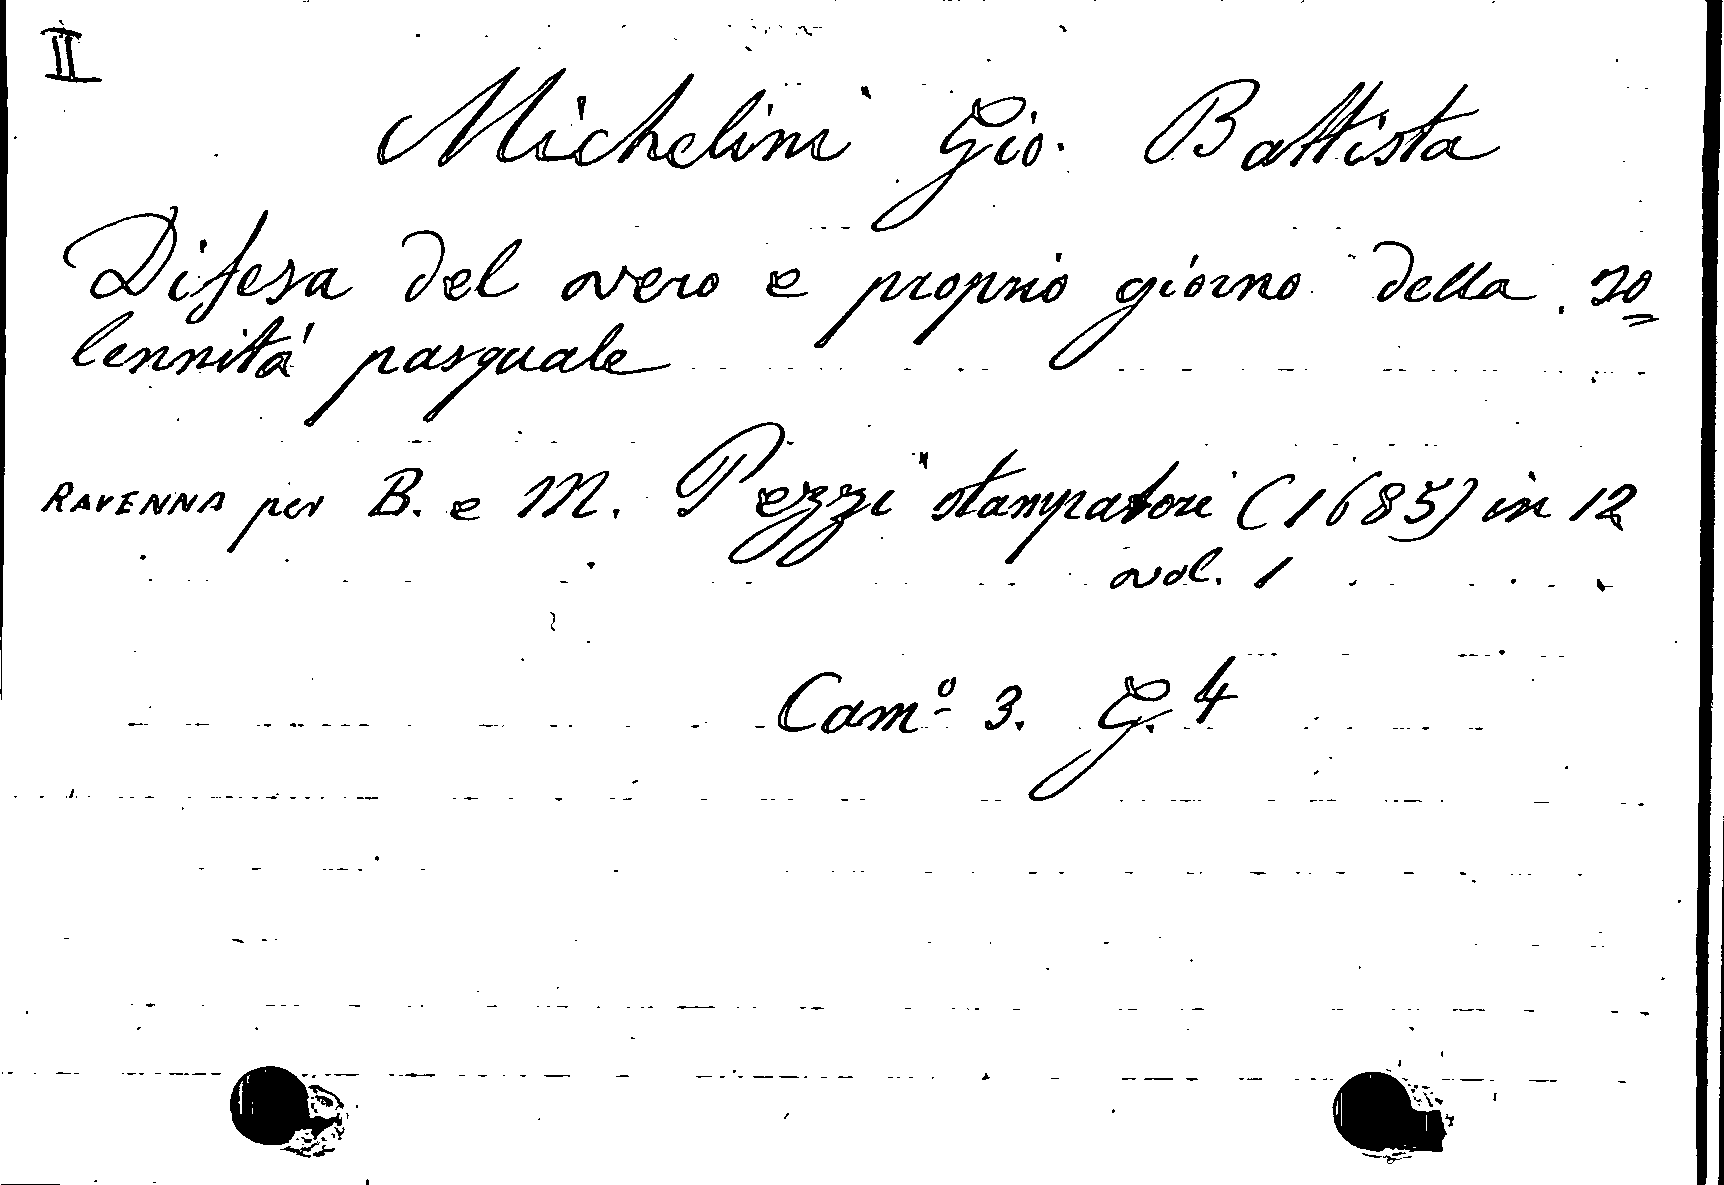 II
Michelini Gio. Battista
Difesa del vero e proprio giorno della so=
lennitá pasquale
RAVENNA per B. e M. Pezzi stampatori (1685) in 12
vol. 1
Camº 3. G. 4